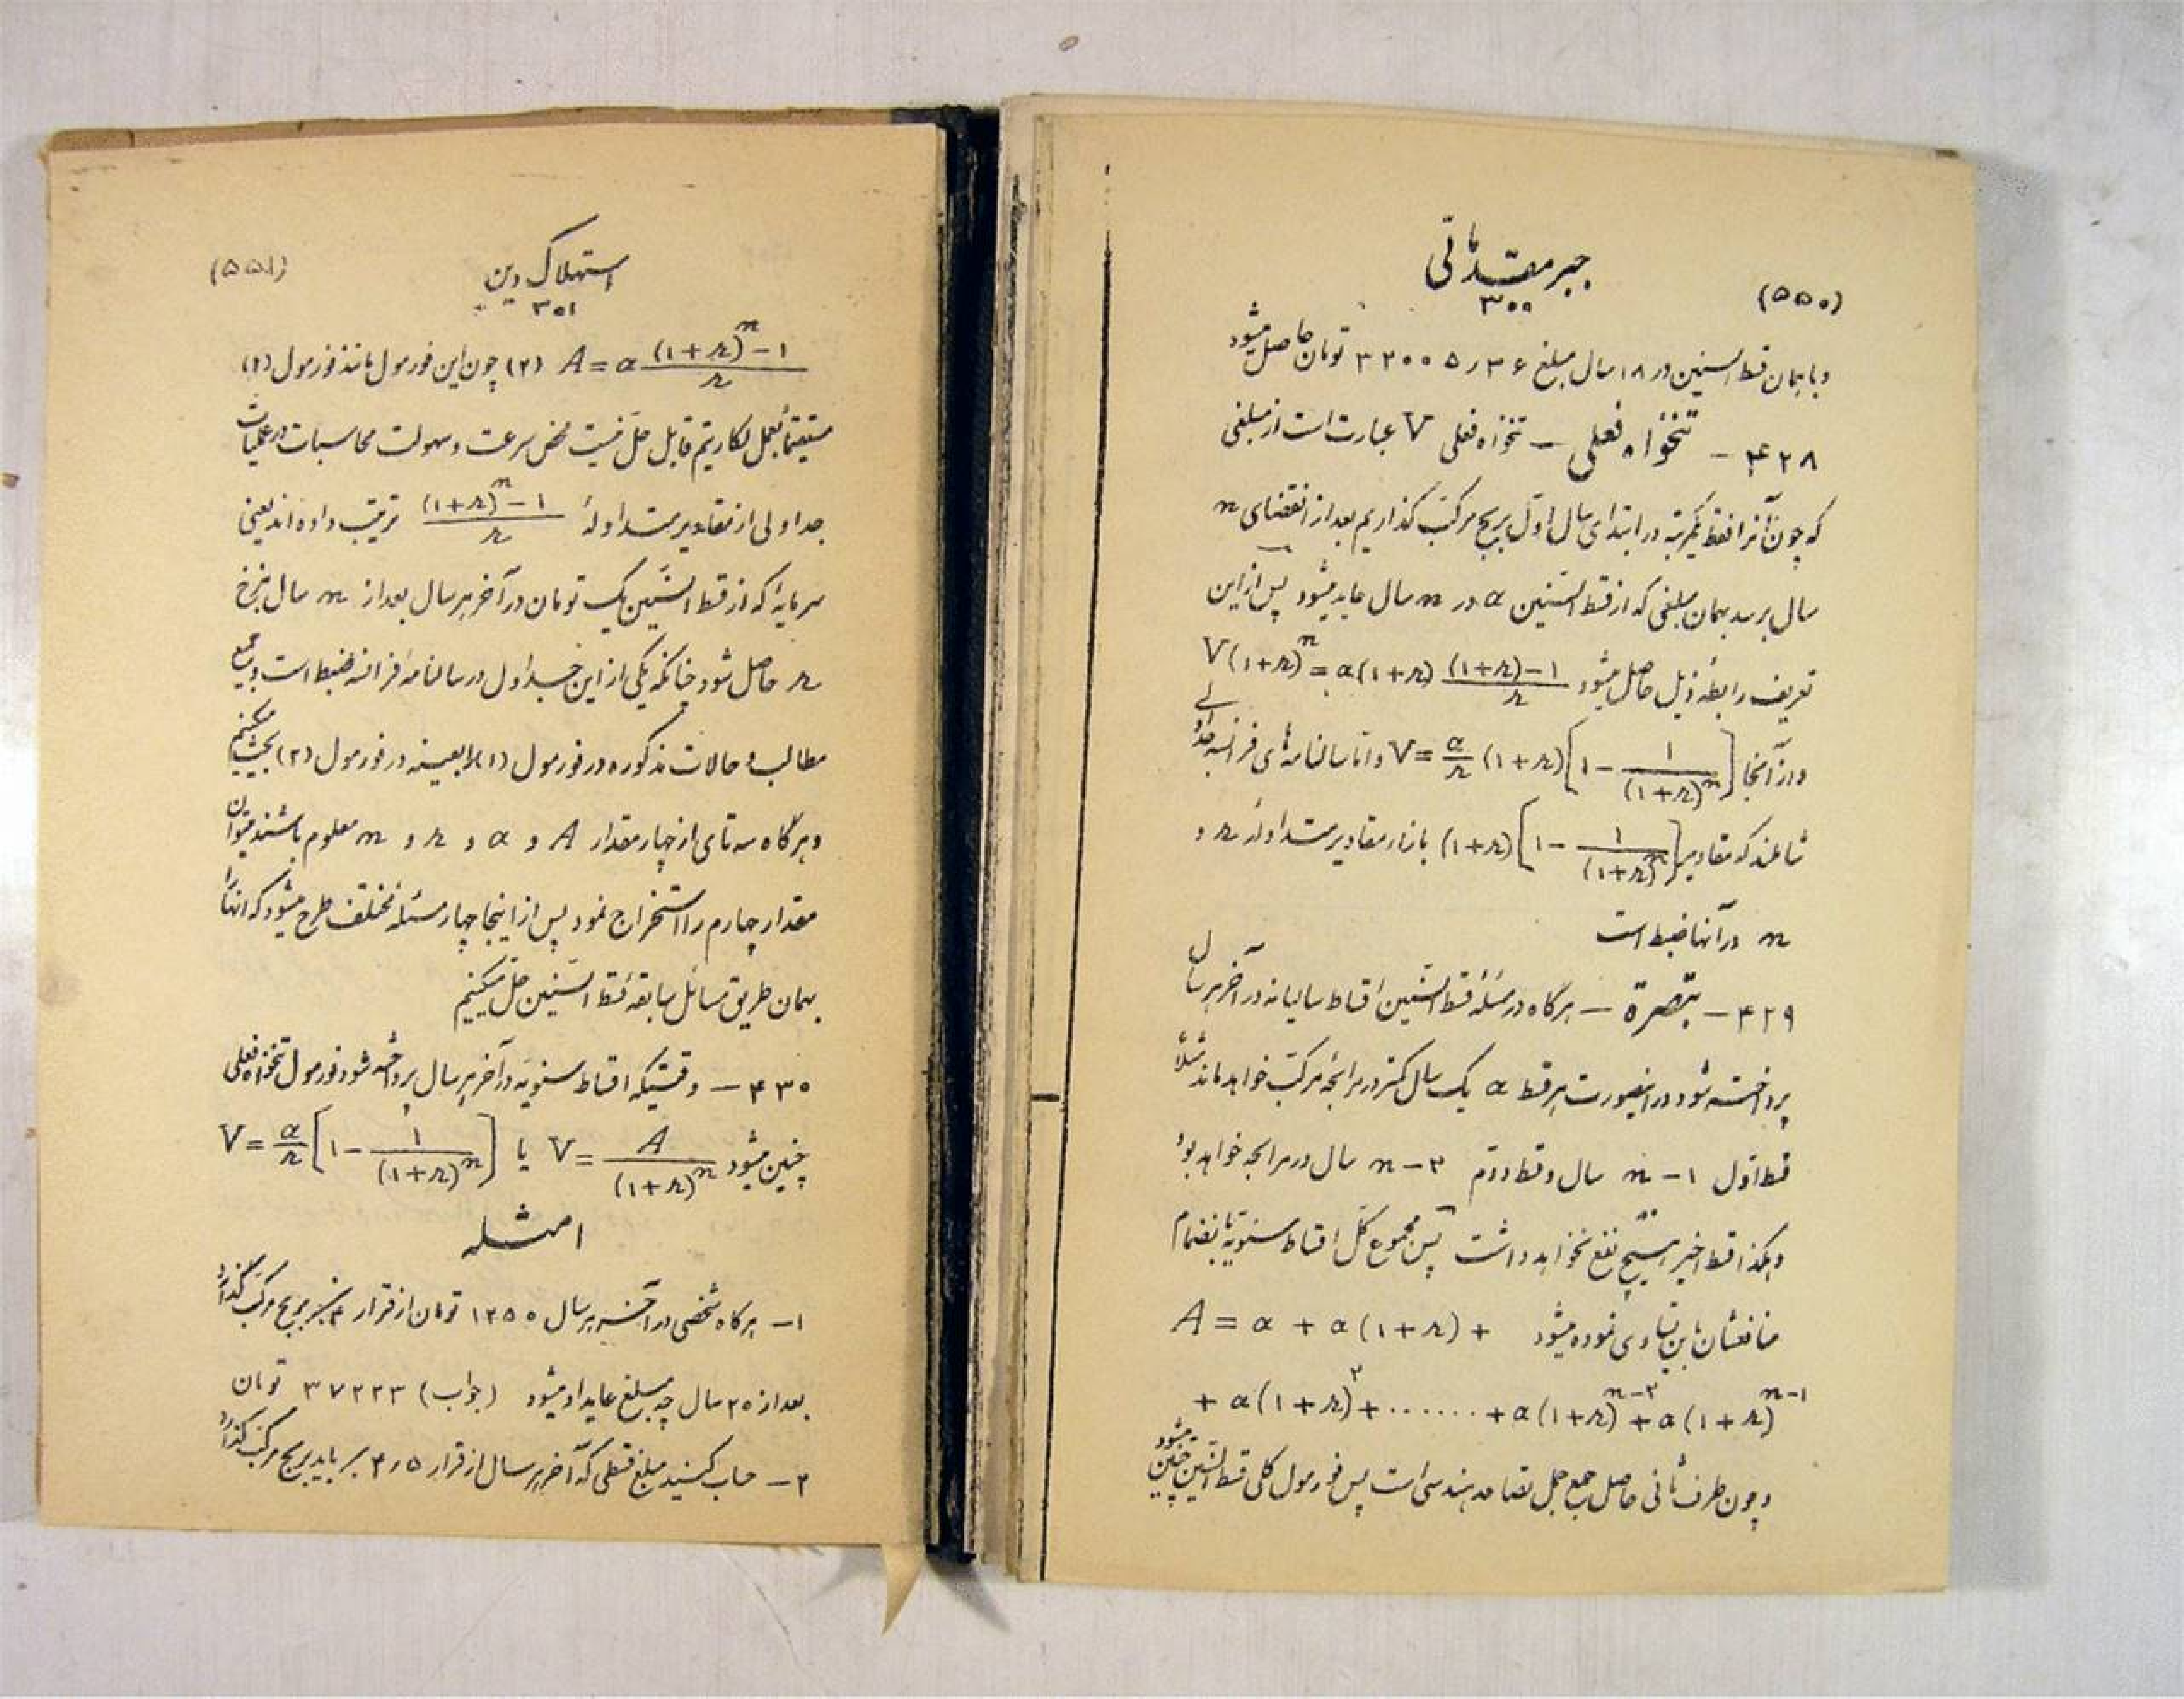 (۵۵۰)
جبر مقدماتی
۳۰۰
و با همان قسط السنین در ۱۸ سال مبلغ ۳۲۰۰۵٫۳۶ تومان حاصل میشود
۴۲۸ – تنخواه فعلی – تنخواه فعلی V عبارت است از مبلغی
که چون آنرا فقط یکمرتبه در ابتدای سال اول بربح مرکب گذاریم بعد از انقضای n
سال برسد بهمان مبلغی که از قسط السنین a در n سال عاید میشود پس از این
تعریف رابطه ذیل حاصل میشود V(1+r)^n = a(1+r) ((1+r)-1)/r
و از آنجا V = a/r (1+r)[1 - 1/(1+r)^n] و اما سالنامه های فرانسه جداولی
شاملند که مقادیر (1+r)[1 - 1/(1+r)^n] بازاء مقادیر متداوله r و
n در آنها ضبط است
۴۲۹ – تبصرة – هرگاه در مسئله قسط السنین اقساط سالیانه در آخر هر سال
پرداخته شود در اینصورت هر قسط a یک سال کمتر در مرابحه مرکب خواهد ماند مثلاً
قسط اول n - ۱ سال و قسط دوم n - ۲ سال در مرابحه خواهد بود
و هکذا قسط اخیر هیچ نفع نخواهد داشت پس مجموع کل اقساط سنویه بانضمام
منافعشان باین تساوی نموده میشود A = a + a(1+r) +
+ a(1+r)^۲ + ...... + a(1+r)^n-۲ + a(1+r)^n-۱
و چون طرف ثانی حاصل جمع جمل تصاعد هندسی است پس فورمول کلی قسط السنین چنین میشود
استهلاک دین
(۵۵۱)
۳۰۱
A = a ((1+r)^n - 1)/r (۲) چون این فورمول مانند فورمول (۱)
مستقیماً بعمل لگاریتم قابل حل نیست محض سرعت و سهولت محاسبات در عملیات
جداولی از مقادیر متداوله ((1+r)^n - 1)/r ترتیب داده اند یعنی
سرمایه که از قسط السنین یک تومان در آخر هر سال بعد از n سال بنرخ
r حاصل شود چنانکه یکی از این جداول در سالنامه فرانسه ضبط است و جمیع
مطالب و حالات مذکوره در فورمول (۱) را بعینه در فورمول (۲) بحث میکنیم
و هرگاه سه تای از چهار مقدار A و a و r و n معلوم باشند میتوان
مقدار چهارم را استخراج نمود پس از اینجا چهار مسئله مختلف طرح میشود که آنها را
بهمان طریق مسائل سابقه قسط السنین حل میکنیم
۴۳۰ – وقتیکه اقساط سنویه در آخر هر سال پرداخته شود فورمول تنخواه فعلی
چنین میشود V = A/(1+r)^n یا V = a/r [1 - 1/(1+r)^n]
امثله
۱ – هرگاه شخصی در آخر هر سال ۱۲۵۰ تومان از قرار ۴ بربح مرکب گذارد
بعد از ۲۰ سال چه مبلغ عاید او میشود (جواب) ۳۷۲۲۳ تومان
۲ – حساب کنید مبلغ قسطی که آخر هر سال از قرار ۴٫۵ باید بربح مرکب گذارد